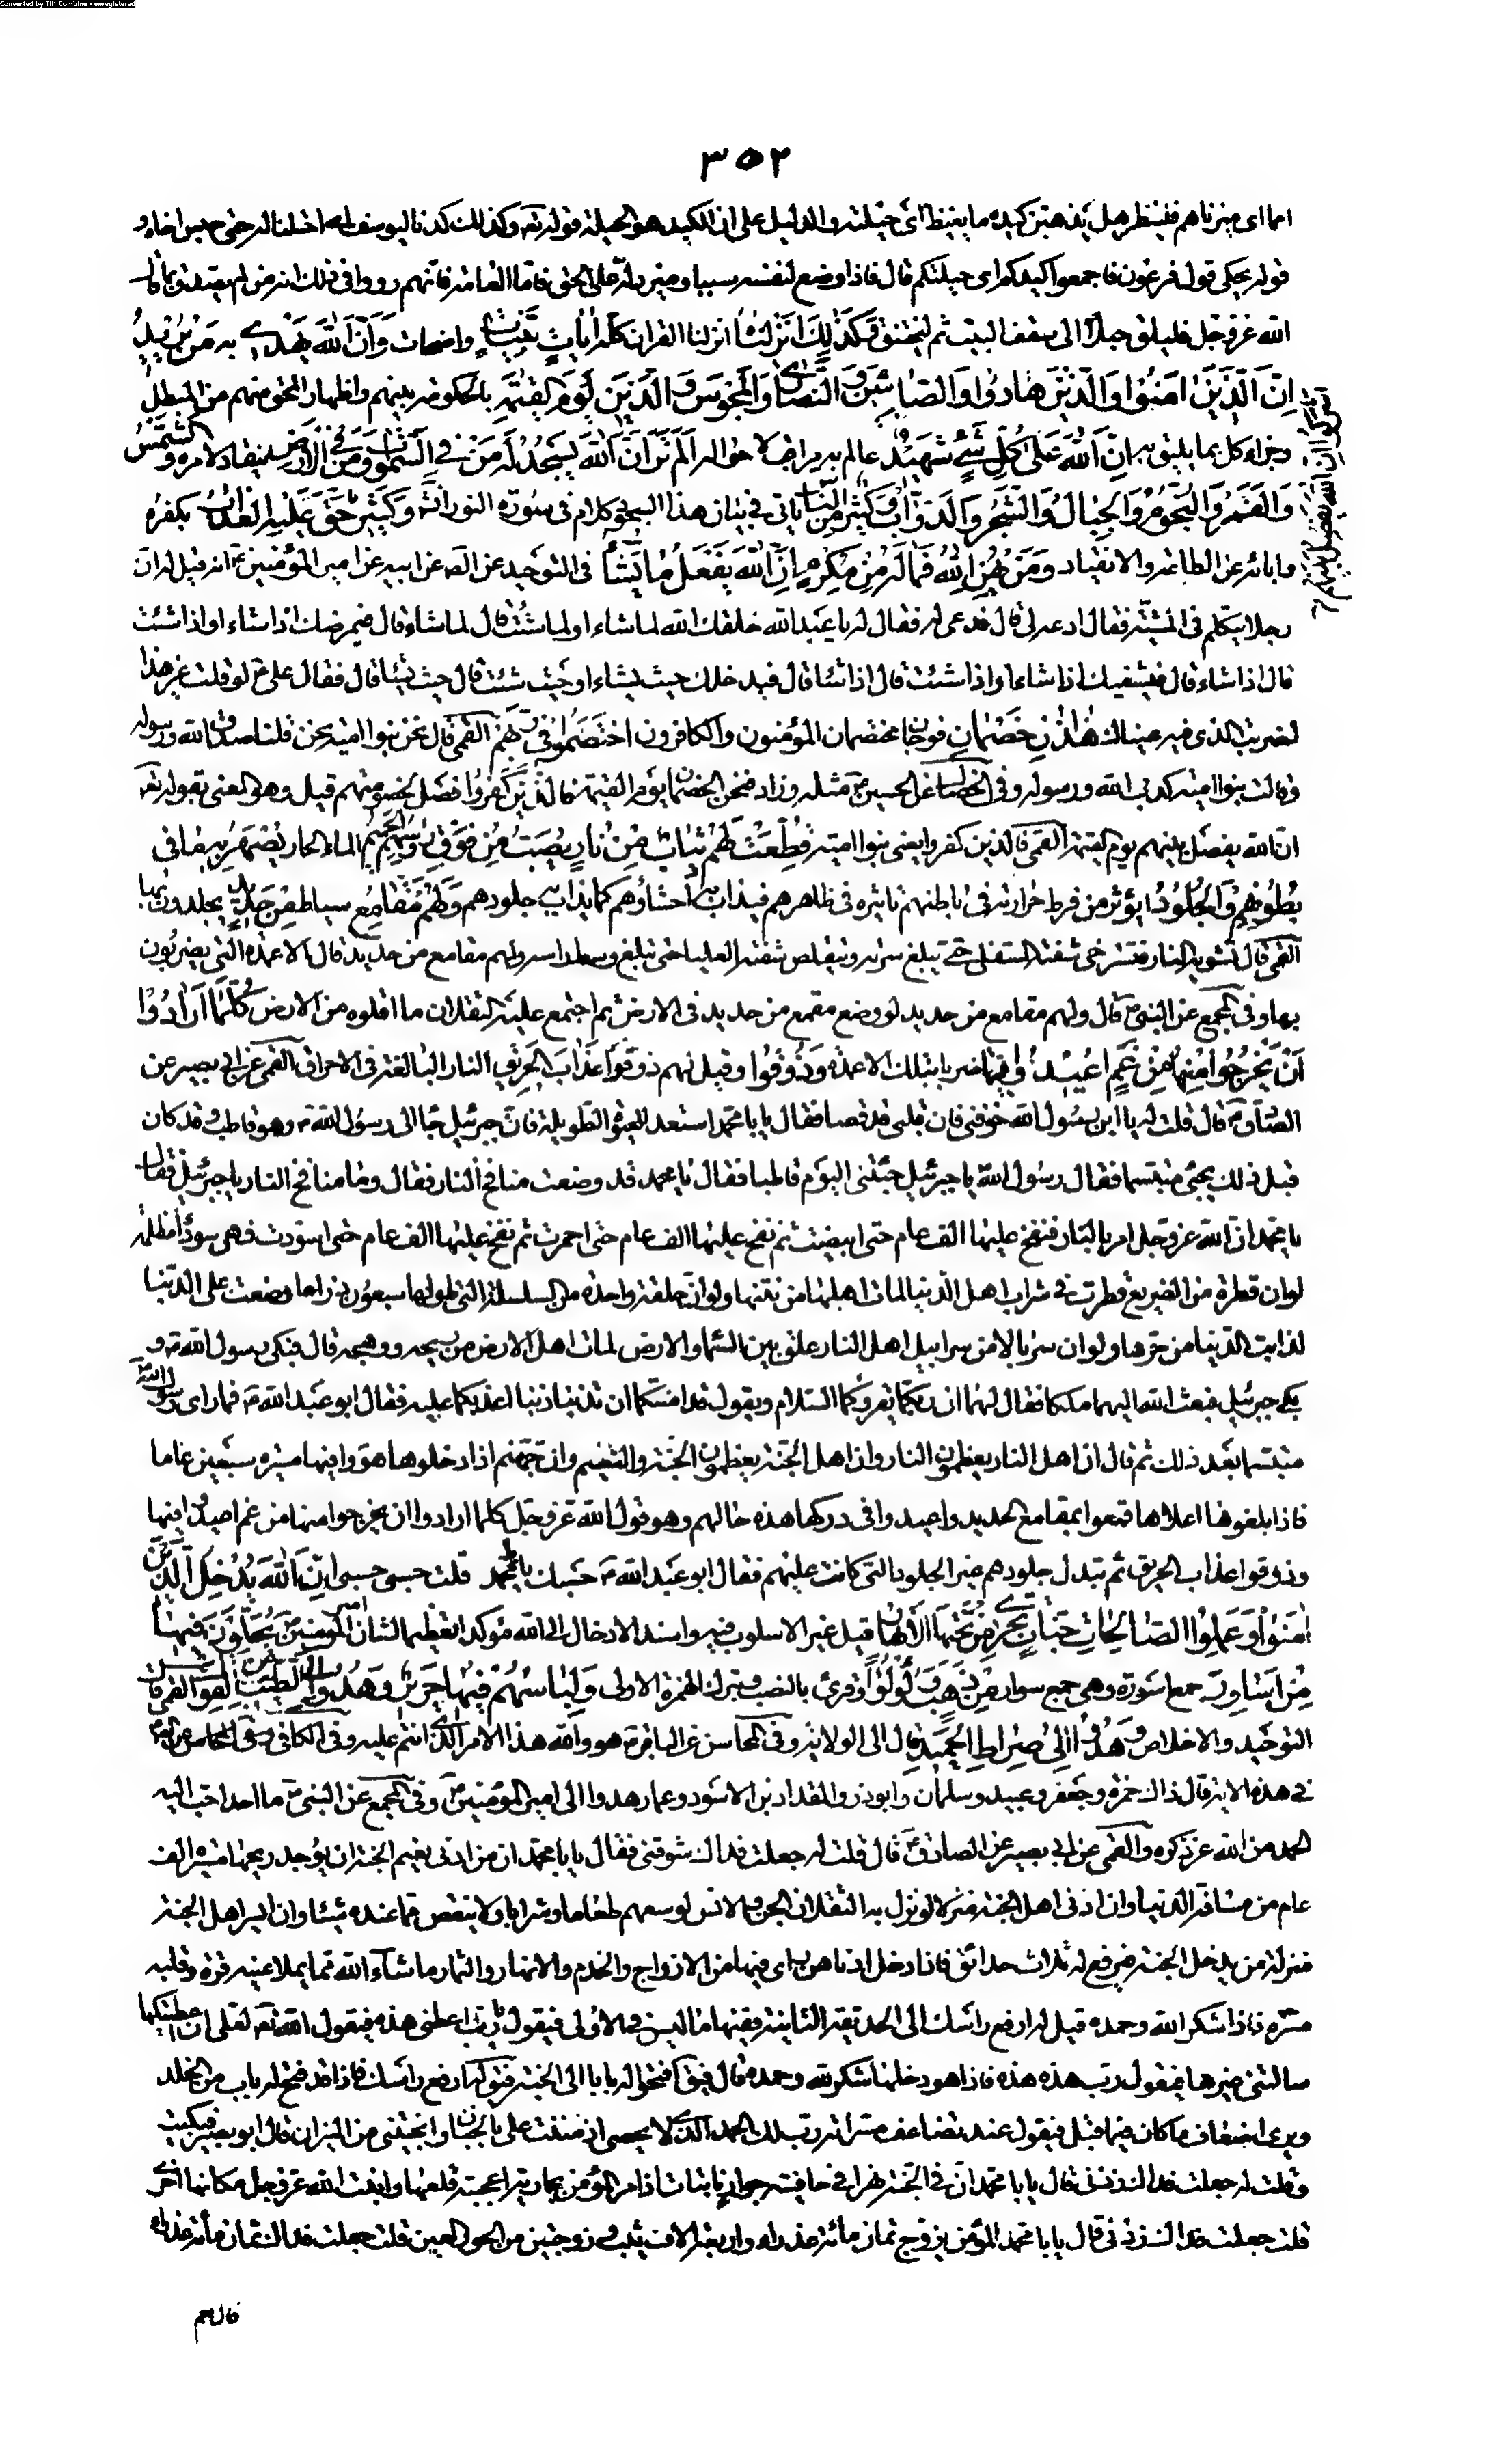 Converted by Tiff Combine - unregistered
٣٥٢
اما اى ميزناهم فلينظر هل يذهبن كيده ما يغيظ اى حيلته والدليل على ان الكيد هو الحيلة قوله تع وكذلك كدنا ليوسف اى احتلنا له حتى حبس اخاه و
قوله يحكى قول فرعون فاجمعوا كيدكم اى حيلتكم قال فاذا وضع لنفسه سببا وميز دلّه على الحق فامّا العامة فانهم رووا فى ذلك انه من لم يصدق بما قال
الله عز وجل فليلق حبلا الى سقف البيت ثم ليختنق وَكَذٰلِكَ اَنْزَلْنٰاهُ انزلنا القران كله اٰيٰاتٍ بَيِّنٰاتٍ واضحات وَاَنَّ اللّٰهَ يَهْدِى به مَنْ يُرِيدُ
اِنَّ الَّذِينَ اٰمَنُوا وَالَّذِينَ هٰادُوا وَالصّٰابِئِينَ وَالنَّصٰارىٰ وَالْمَجُوسَ وَالَّذِينَ يَوْمَ الْقِيٰمَةِ بالحكومة بينهم واظهار المحق منهم من المبطل
وجزاء كل بما يليق به اِنَّ اللّٰهَ عَلىٰ كُلِّ شَىْءٍ شَهِيدٌ عالم به مراقب لاحواله اَلَمْ تَرَ اَنَّ اللّٰهَ يَسْجُدُ لَهُ مَنْ فِى السَّمٰوٰاتِ وَمَنْ فِى الْاَرْضِ ينقاد لامره وَالشَّمْسُ
وَالْقَمَرُ وَالنُّجُومُ وَالْجِبٰالُ وَالشَّجَرُ وَالدَّوٰابُّ وَكَثِيرٌ مِنَ النّٰاسِ ياتى فى بيان هذا السجود كلام فى سورة النور انش وَكَثِيرٌ حَقَّ عَلَيْهِ الْعَذٰابُ بكفره
وابائه عن الطاعة والانقياد وَمَنْ يُهِنِ اللّٰهُ فَمٰا لَهُ مِنْ مُكْرِمٍ اِنَّ اللّٰهَ يَفْعَلُ مٰا يَشٰاءُ فى التوحيد عن الص عن ابيه عن امير المؤمنين ع انه قيل له ان
رجلا يتكلم فى المشيّة فقال ادعه لى قال فدعى له فقال له يا عبد الله خلقك الله لما شاء او لما شئت قال لما شاء قال فيمرضك اذا شاء او اذا شئت
قال اذا شاء قال فيشفيك اذا شاء او اذا شئت قال اذا شاء قال فيدخلك حيث يشاء او حيث شئت قال حيث يشاء قال فقال على ع لو قلت غير هذا
لضربت الذى فيه عيناك هٰذٰانِ خَصْمٰانِ فوجان مختصمان المؤمنون والكافرون اخْتَصَمُوا فِى رَبِّهِمْ القمى قال نحن وبنوا امية نحن قلنا صدق الله ورسوله
وقالت بنوا امية كذب الله ورسوله وفى الخصال عن الحسين ع مثله وزاد فنحن الخصمان يوم القيمة فَالَّذِينَ كَفَرُوا فصل لخصومتهم قيل وهو المعنى بقوله تع
ان الله يفصل بينهم يوم القيمة القمى فالذين كفروا يعنى بنوا امية قُطِّعَتْ لَهُمْ ثِيٰابٌ مِنْ نٰارٍ يُصَبُّ مِنْ فَوْقِ رُؤُسِهِمُ الْحَمِيمُ الماء الحار يُصْهَرُ بِهِ مٰا فِى
بُطُونِهِمْ وَالْجُلُودُ يؤثر من فرط حرارته فى باطنهم تاثيره فى ظاهرهم فيذاب به احشاؤهم كما يذاب به جلودهم وَلَهُمْ مَقٰامِعُ سياط مِنْ حَدِيدٍ يجلدون بها
القمى قال تشويه النار فتسترخى شفته السفلى حتى تبلغ سرته وتتقلص شفته العليا حتى تبلغ وسط راسه ولهم مقامع من حديد قال الاعمدة التى يضربون
بها وفى المجمع عن النبى ص قال ولهم مقامع من حديد لو وضع مقمع من حديد فى الارض ثم اجتمع عليه الثقلان ما اقلوه من الارض كُلَّمٰا اَرٰادُوا
اَنْ يَخْرُجُوا مِنْهٰا مِنْ غَمٍّ اُعِيدُوا فِيهٰا ضربا بتلك الاعمدة وَذُوقُوا وقيل لهم ذوقوا عَذٰابَ الْحَرِيقِ النار البالغة فى الاحراق القمى عن ابى بصير عن
الصادق ع قال قلت له يا ابن رسول الله خوفنى فان قلبى قد قسا فقال يا با محمد استعد للحيوة الطويلة فان جبرئيل جاء الى رسول الله ص وهو قاطب وقد كان
قبل ذلك يجئ متبسما فقال رسول الله يا جبرئيل جئتنى اليوم قاطبا فقال يا محمد قد وضعت منافخ النار فقال وما منافخ النار يا جبرئيل فقال
يا محمد ان الله عز وجل امر بالنار فنفخ عليها الف عام حتى ابيضت ثم نفخ عليها الف عام حتى احمرت ثم نفخ عليها الف عام حتى اسودت فهى سوداء مظلمة
لو ان قطرة من الضريع قطرت فى شراب اهل الدنيا لمات اهلها من نتنها ولو ان حلقة واحدة من السلسلة التى طولها سبعون ذراعا وضعت على الدنيا
لذابت الدنيا من حرها ولو ان سربالا من سرابيل اهل النار علق بين السماء والارض لمات اهل الارض من ريحه ووهجه قال فبكى رسول الله ص و
بكى جبرئيل فبعث الله اليهما ملكا فقال لهما ان ربكما يقرؤكما السلام ويقول قد امنتكما ان تذنبا ذنبا اعذبكما عليه فقال ابو عبد الله ع فما راى رسول الله ص
متبسما بعد ذلك ثم قال ان اهل النار يعظمون النار وان اهل الجنة يعظمون الجنة والنعيم وان جهنم اذا دخلوها هووا فيها مسيرة سبعين عاما
فاذا بلغوا اعلاها قمعوا بمقامع الحديد واعيدوا فى دركها هذه حالهم وهو قول الله عز وجل كلما ارادوا ان يخرجوا منها من غم اعيدوا فيها
وذوقوا عذاب الحريق ثم تبدل جلودهم غير الجلود التى كانت عليهم فقال ابو عبد الله ع حسبك يا با محمد قلت حسبى حسبى اِنَّ اللّٰهَ يُدْخِلُ الَّذِينَ
اٰمَنُوا وَعَمِلُوا الصّٰالِحٰاتِ جَنّٰاتٍ تَجْرِى مِنْ تَحْتِهَا الْاَنْهٰارُ قيل غير الاسلوب فيه واسند الادخال الى الله مؤكدا تعظيما لشان المؤمنين يُحَلَّوْنَ فِيهٰا
مِنْ اَسٰاوِرَ جمع اسورة وهى جمع سوار مِنْ ذَهَبٍ وَلُؤْلُؤًا وقرئ بالنصب وبترك الهمزة الاولى وَلِبٰاسُهُمْ فِيهٰا حَرِيرٌ وَهُدُوا اِلَى الطَّيِّبِ مِنَ الْقَوْلِ القمى قال
التوحيد والاخلاص وَهُدُوا اِلىٰ صِرٰاطِ الْحَمِيدِ قال الى الولاية وفى المحاسن عن الباقر ع هو والله هذا الامر الذى انتم عليه وفى الكافى
فى هذه الاية قال ذاك حمزة وجعفر وعبيدة وسلمان وابو ذر والمقداد بن الاسود وعمار هدوا الى امير المؤمنين ع وفى المجمع عن النبى ص ما احد احب اليه
الحمد من الله عز ذكره والقمى عن ابى بصير عن الصادق ع قال قلت له جعلت فداك شوقنى فقال يا با محمد ان من ادنى نعيم الجنة ان يوجد ريحها مسيرة الف
عام من مسافة الدنيا وان ادنى اهل الجنة منزلا لو نزل به الثقلان الجن والانس لوسعهم طعاما وشرابا ولا ينقص مما عنده شيئا وان ايسر اهل الجنة
منزلة من يدخل الجنة فيرفع له ثلاث حدائق فاذا دخل ادناهن راى فيها من الازواج والخدم والانهار والثمار ما شاء الله مما يملا عينه قرة وقلبه
مسرة فاذا شكر الله وحمده قيل له ارفع راسك الى الحديقة الثانية ففيها ما ليس فى الاولى فيقول يا رب اعطنى هذه فيقول الله تع لعلى ان اعطيتكها
سالتنى غيرها فيقول رب هذه هذه فاذا هو دخلها شكر الله وحمده قال فيق افتحوا له بابا الى الجنة فيق له ارفع راسك فاذا قد فتح له باب من الخلد
ويرى اضعاف ما كان فيما قبل فيقول عند تضاعف مسراته رب لك الحمد الذى لا يحصى اذ مننت على بالجنان وانجيتنى من النيران قال ابو بصير فبكيت
وقلت له جعلت فداك زدنى قال يا با محمد ان فى الجنة نهرا فى حافيته جوار نابتات اذا مر المؤمن بجارية اعجبته قلعها وانبت الله عز وجل مكانها اخرى
قلت جعلت فداك زدنى قال يا با محمد المؤمن يزوج ثمان مائة عذراء واربعة الاف ثيب وزوجتين من الحور العين قلت جعلت فداك ثمان مائة عذراء
قال نعم